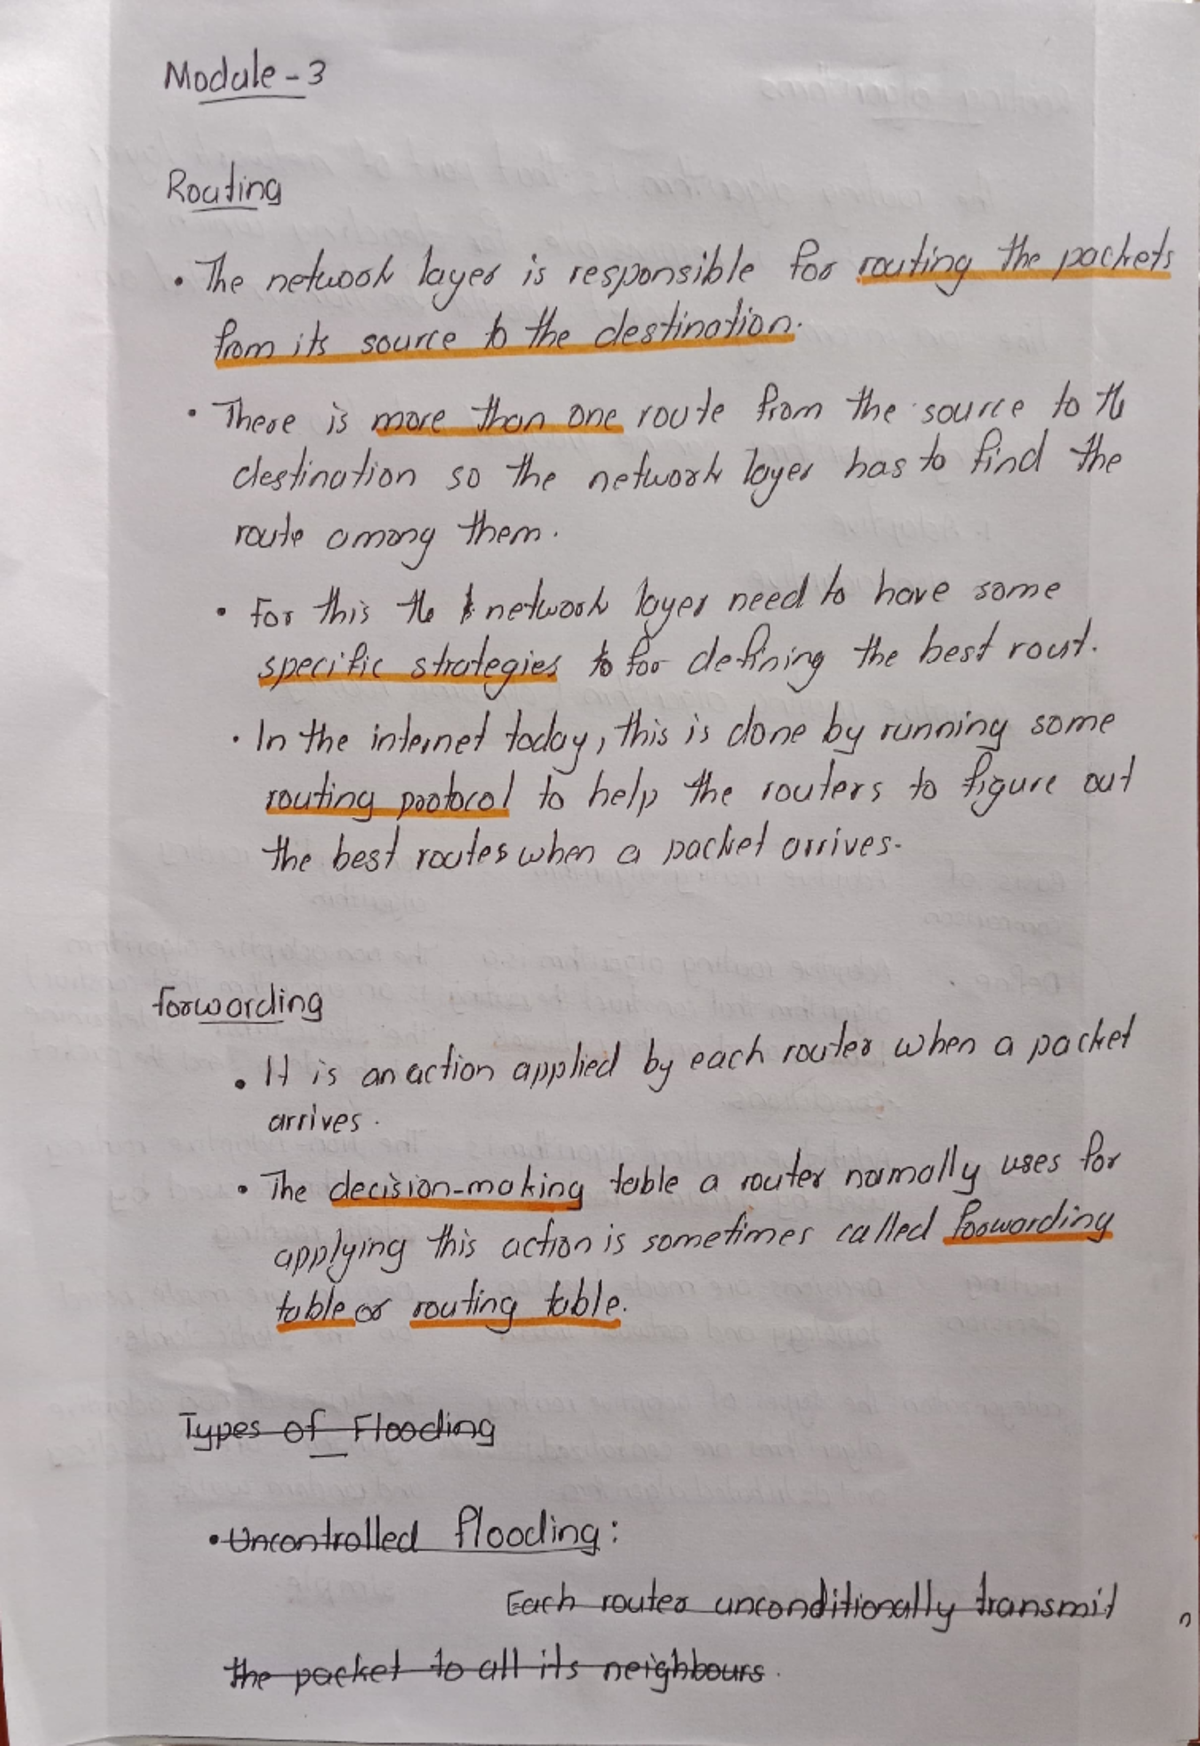 Module - 3
Routing
• The network layer is responsible for routing the packets
from its source to the destination.
• There is more than one route from the source to the
destination so the network layer has to find the
route among them.
• For this the network layer need to have some
specific strategies to for defining the best rout.
• In the internet today, this is done by running some
routing protocol to help the routers to figure out
the best routes when a packet arrives.
forwarding
• It is an action applied by each router when a packet
arrives.
• The decision-making table a router normally uses for
applying this action is sometimes called forwarding
table or routing table.
Types of Flooding
• Uncontrolled flooding:
Each router unconditionally transmit
the packet to all its neighbours.